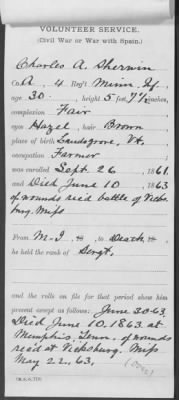 VOLUNTEER SERVICE.
(Civil War or War with Spain.)
Charles A. Sherwin
Co. A, 4 Reg't Minn. Inf.
age 30, height 5 feet, 7½ inches,
complexion Fair
eyes Hazel, hair Brown
place of birth Landsgrove, Vt.
occupation Farmer
was enrolled Sept. 26, 1861,
and Died June 10, 1863
of wounds rec'd battle of Vicks-
burg, Miss
From M-I to Death
he held the rank of Sergt.
and the rolls on file for that period show him
present except as follows: June 30.63
Died June 10, 1863. at
Memphis, Tenn. of wounds
rec'd at Vicksburg. Miss
May 22, 63,